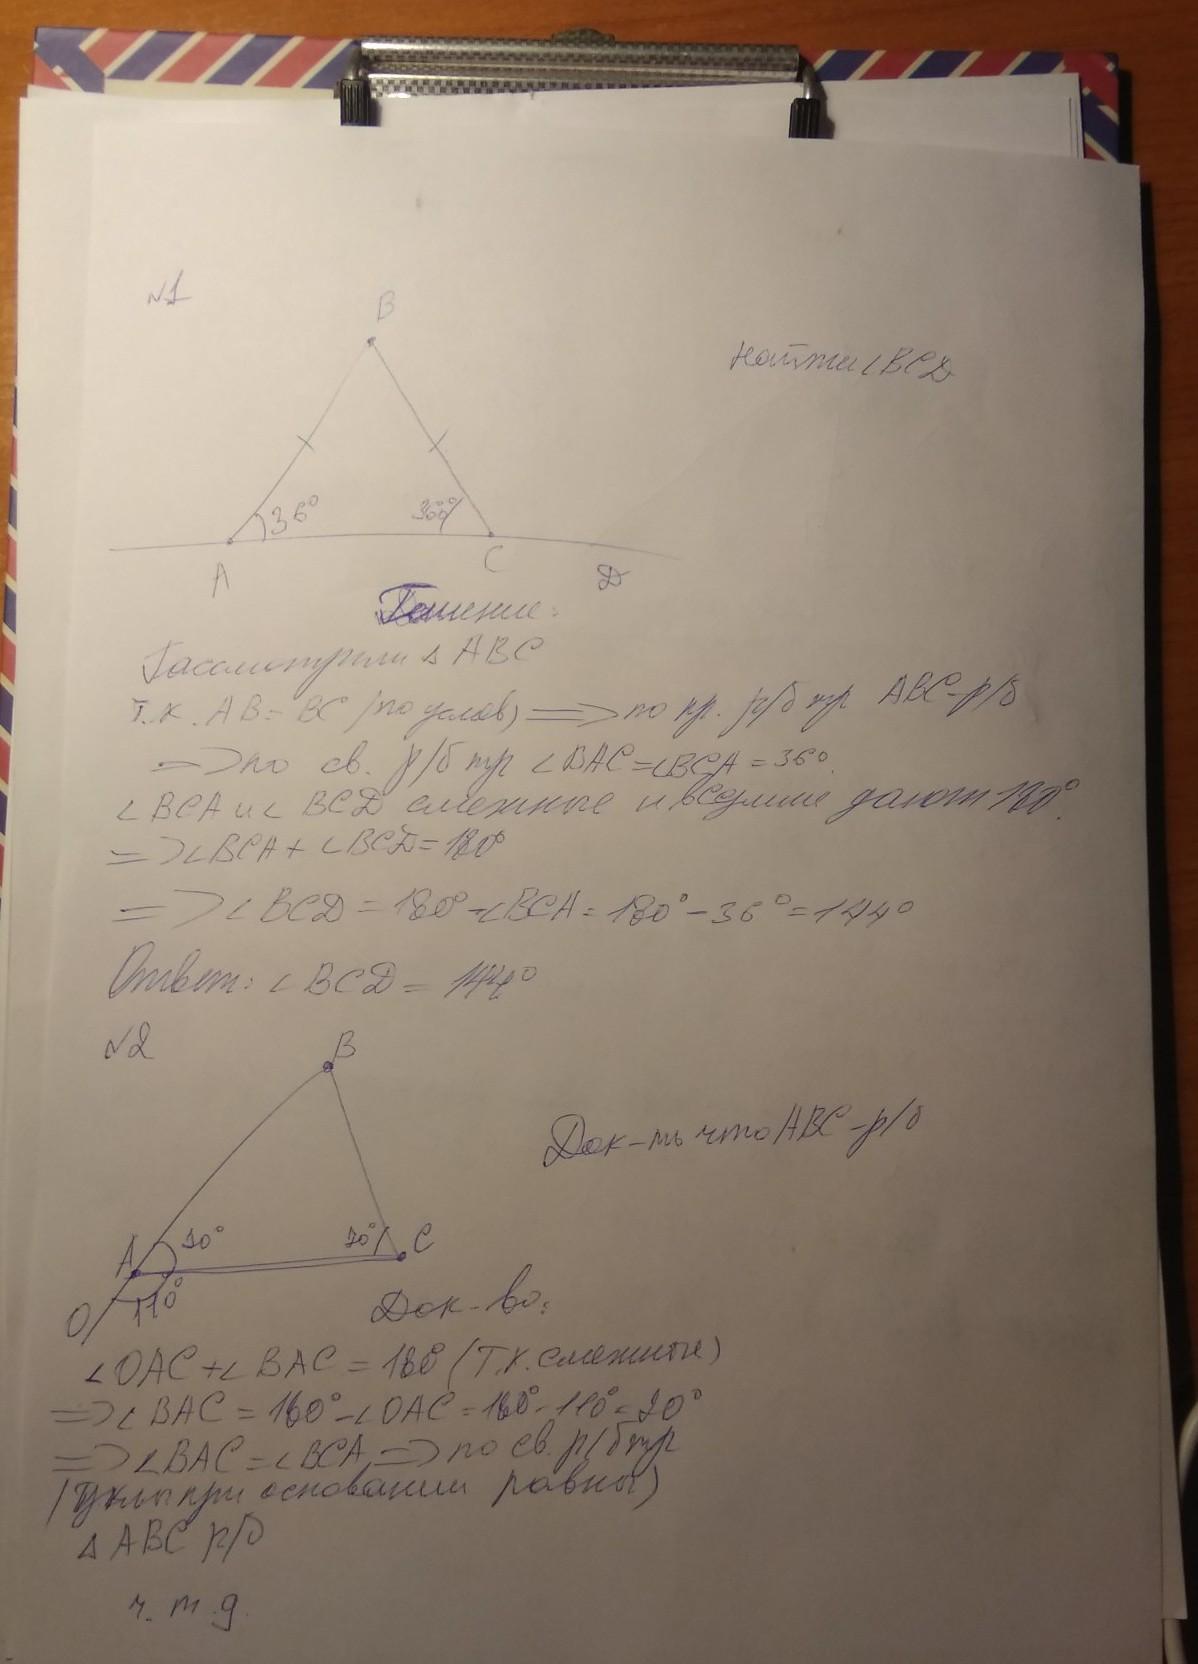 №1
B
Найти ∠BCD
36°
36°
A
C
D
Решение:
Рассмотрим △ ABC
т.к. AB = BC (по услов) => по пр. р/б тр ABC - р/б
=> по св. р/б тр ∠BAC = ∠BCA = 36°.
∠BCA и ∠BCD смежные и в сумме дают 180°.
=> ∠BCA + ∠BCD = 180°
=> ∠BCD = 180° - ∠BCA = 180° - 36° = 144°
Ответ: ∠BCD = 144°
№2
B
Док-ть что ABC - р/б
A
70°
70°
C
O
110°
Док-во:
∠OAC + ∠BAC = 180° (т.к. смежные)
=> ∠BAC = 180° - ∠OAC = 180° - 110° = 70°
=> ∠BAC = ∠BCA => по св. р/б тр
(углы при основании равны)
△ ABC р/б
ч. т. д.